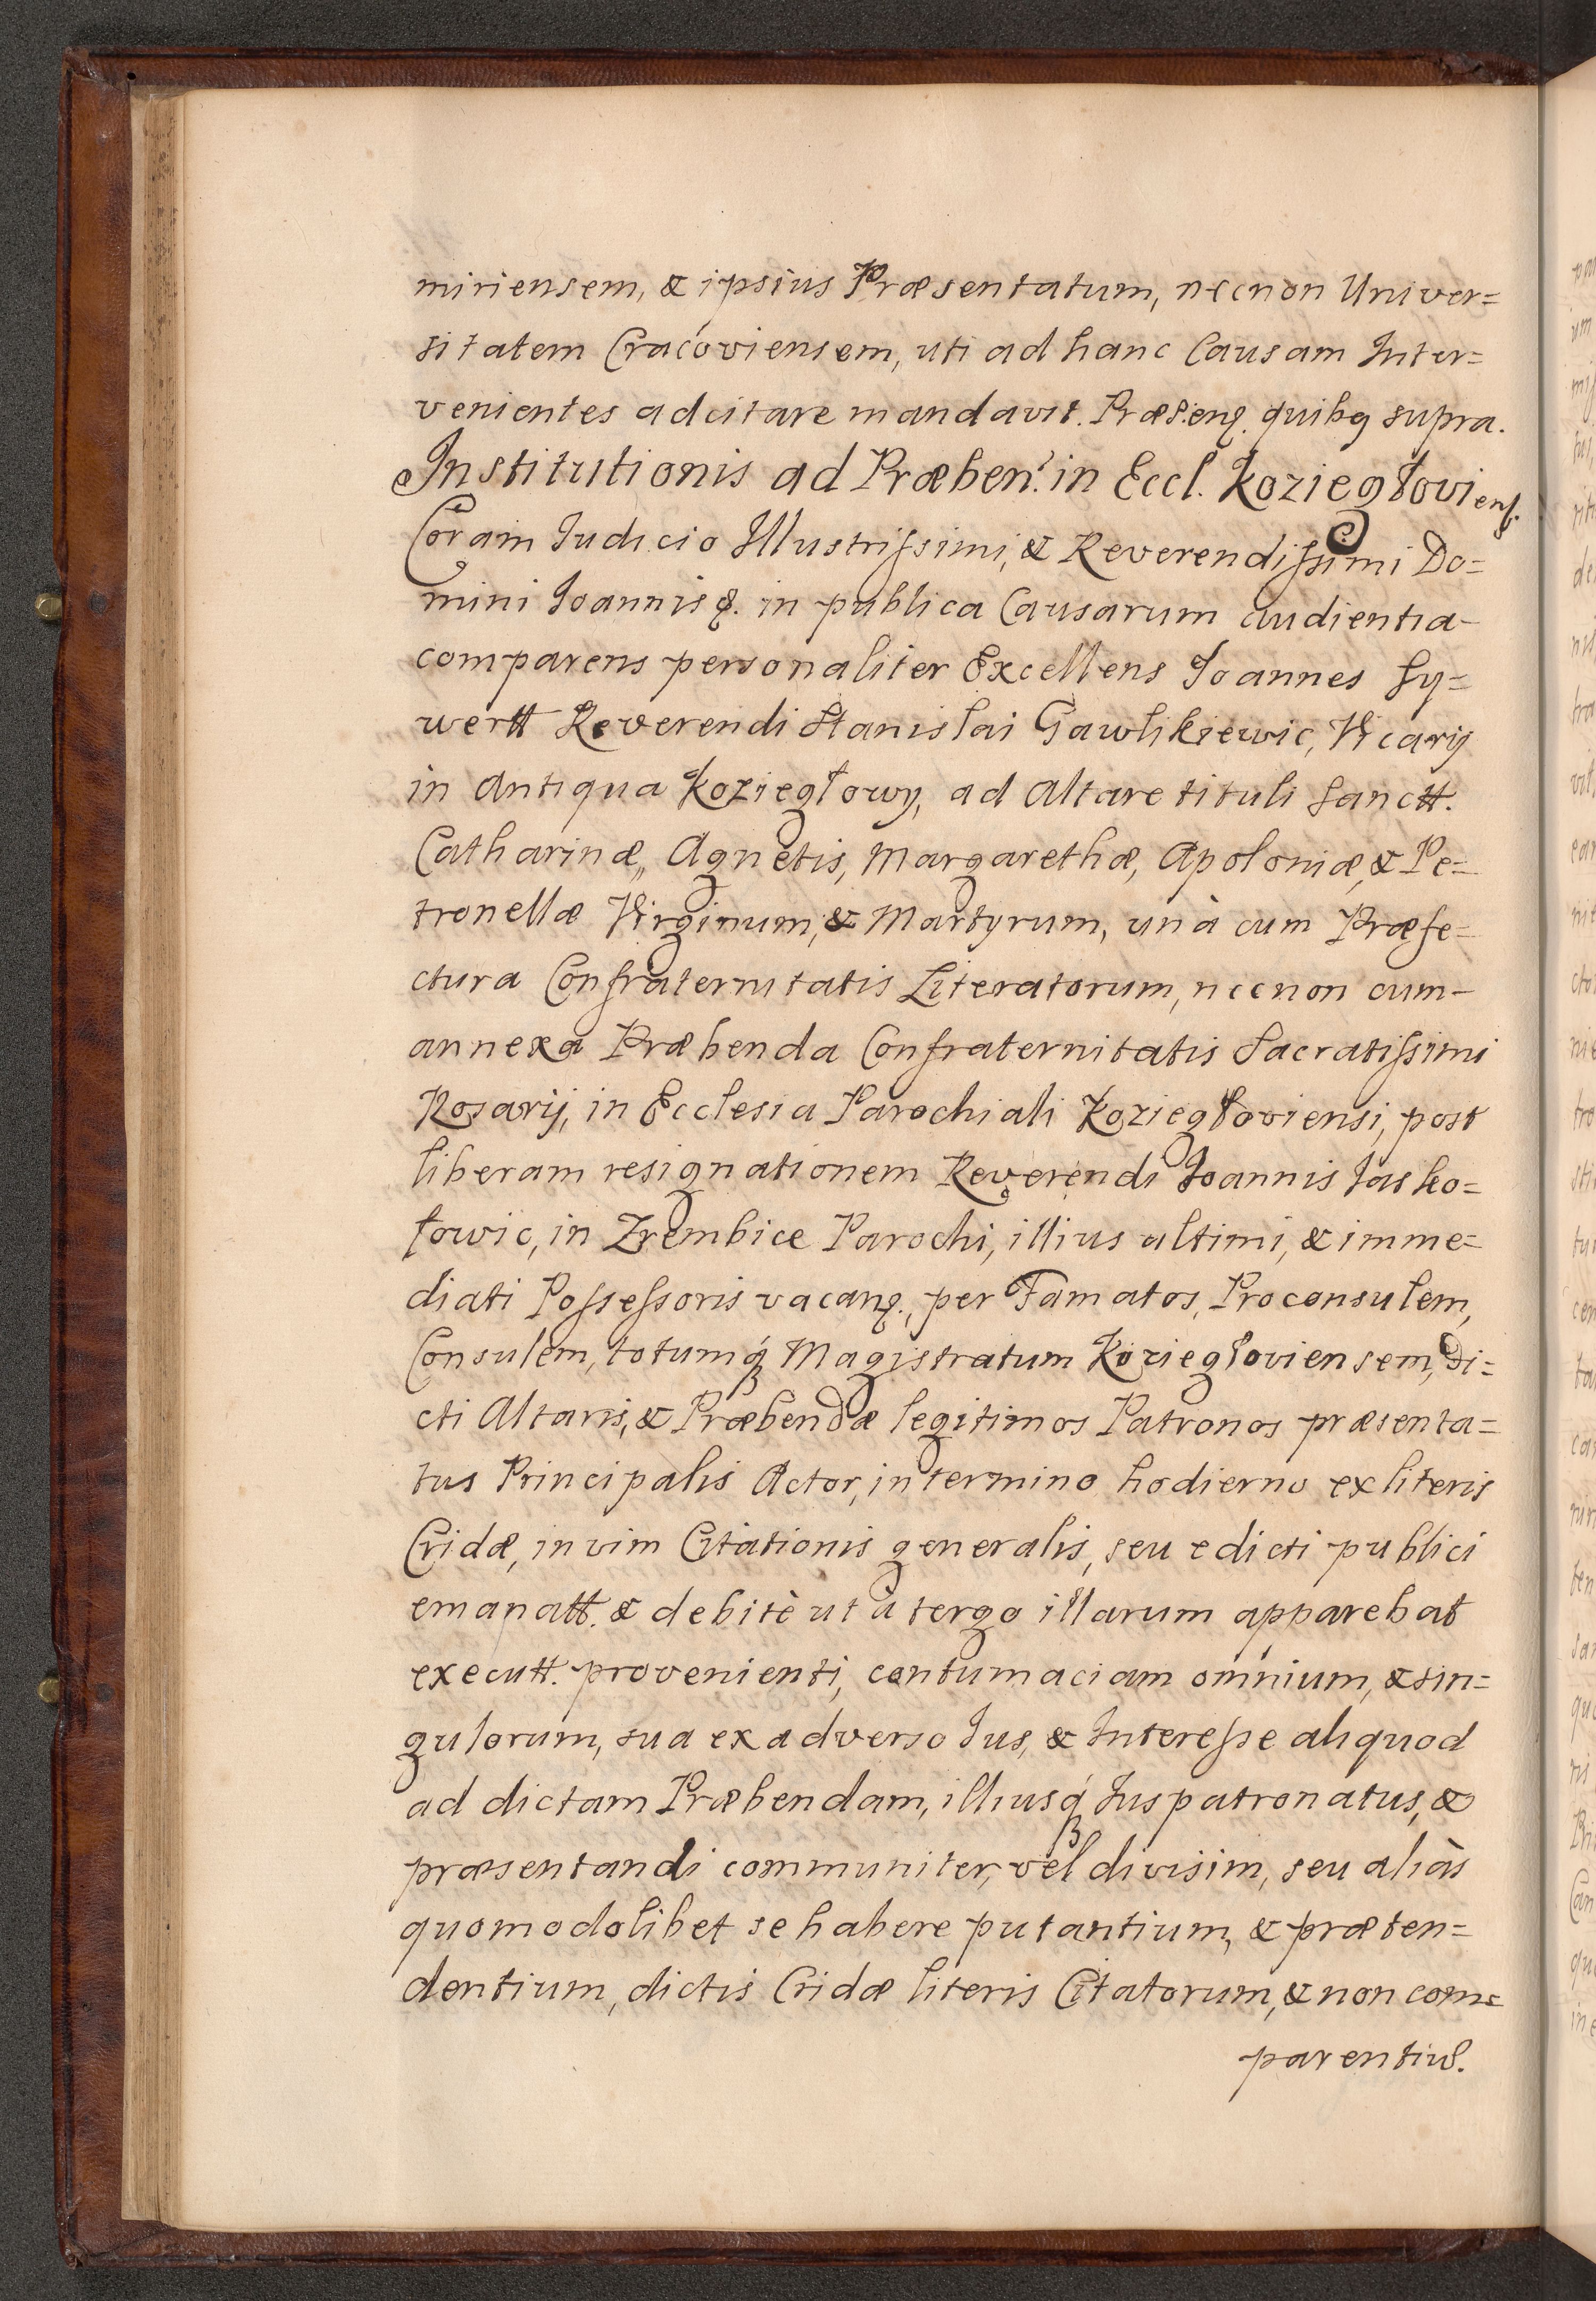 miriensem, & ipsius Præsentatum, necnon Univer=
sitatem Cracoviensem, uti ad hanc Causam Inter=
venientes adcitare mandavit. Præs.enꝫ. quibꝫ supra.
Institutionis ad Præben: in Eccl. Koziegłoviens.
Coram Iudicio Illustrissimi, & Reverendissimi Do=
mini Ioannis ꝫ. in publica Causarum audientia
comparens personaliter Excellens Ioannes Sy=
wertt Reverendi Stanislai Gawlikiewic, Vicarij
in Antiqua Koziegłowy, ad Altare tituli Sanctt.
Catharinæ, Agnetis, Margarethæ, Apoloniæ, & Pe=
tronellæ Virginum, & Martyrum, unà cum Præfe=
ctura Confraternitatis Literatorum, necnon cum
annexa Præbenda Confraternitatis Sacratissimi
Rosarij, in Ecclesia Parochiali Koziegłoviensi, post
liberam resignationem Reverendi Ioannis Iasko=
łowic, in Zrembice Parochi, illius ultimi, & imme=
diati Possessoris vacanꝫ., per Famatos, Proconsulem,
Consulem, totumqꝫ Magistratum Koziegłoviensem, Di=
cti Altaris, & Præbendæ legitimos Patronos præsenta=
tus Principalis Actor, in termino hodierno ex literis
Cridæ, in vim Citationis generalis, seu edicti publici
emanatt. & debitè ut à tergo illarum apparebat
executt. provenienti, contumaciam omnium, & sin=
gulorum, sua ex adverso Ius, & Interesse aliquod
ad dictam Præbendam, illiusqꝫ Iuspatronatus, &
præsentandi communiter, vel divisim, seu aliàs
quomodolibet se habere putantium, & præten=
dentium, dictis Cridæ literis Citatorum, & non com=
parentiu̅.